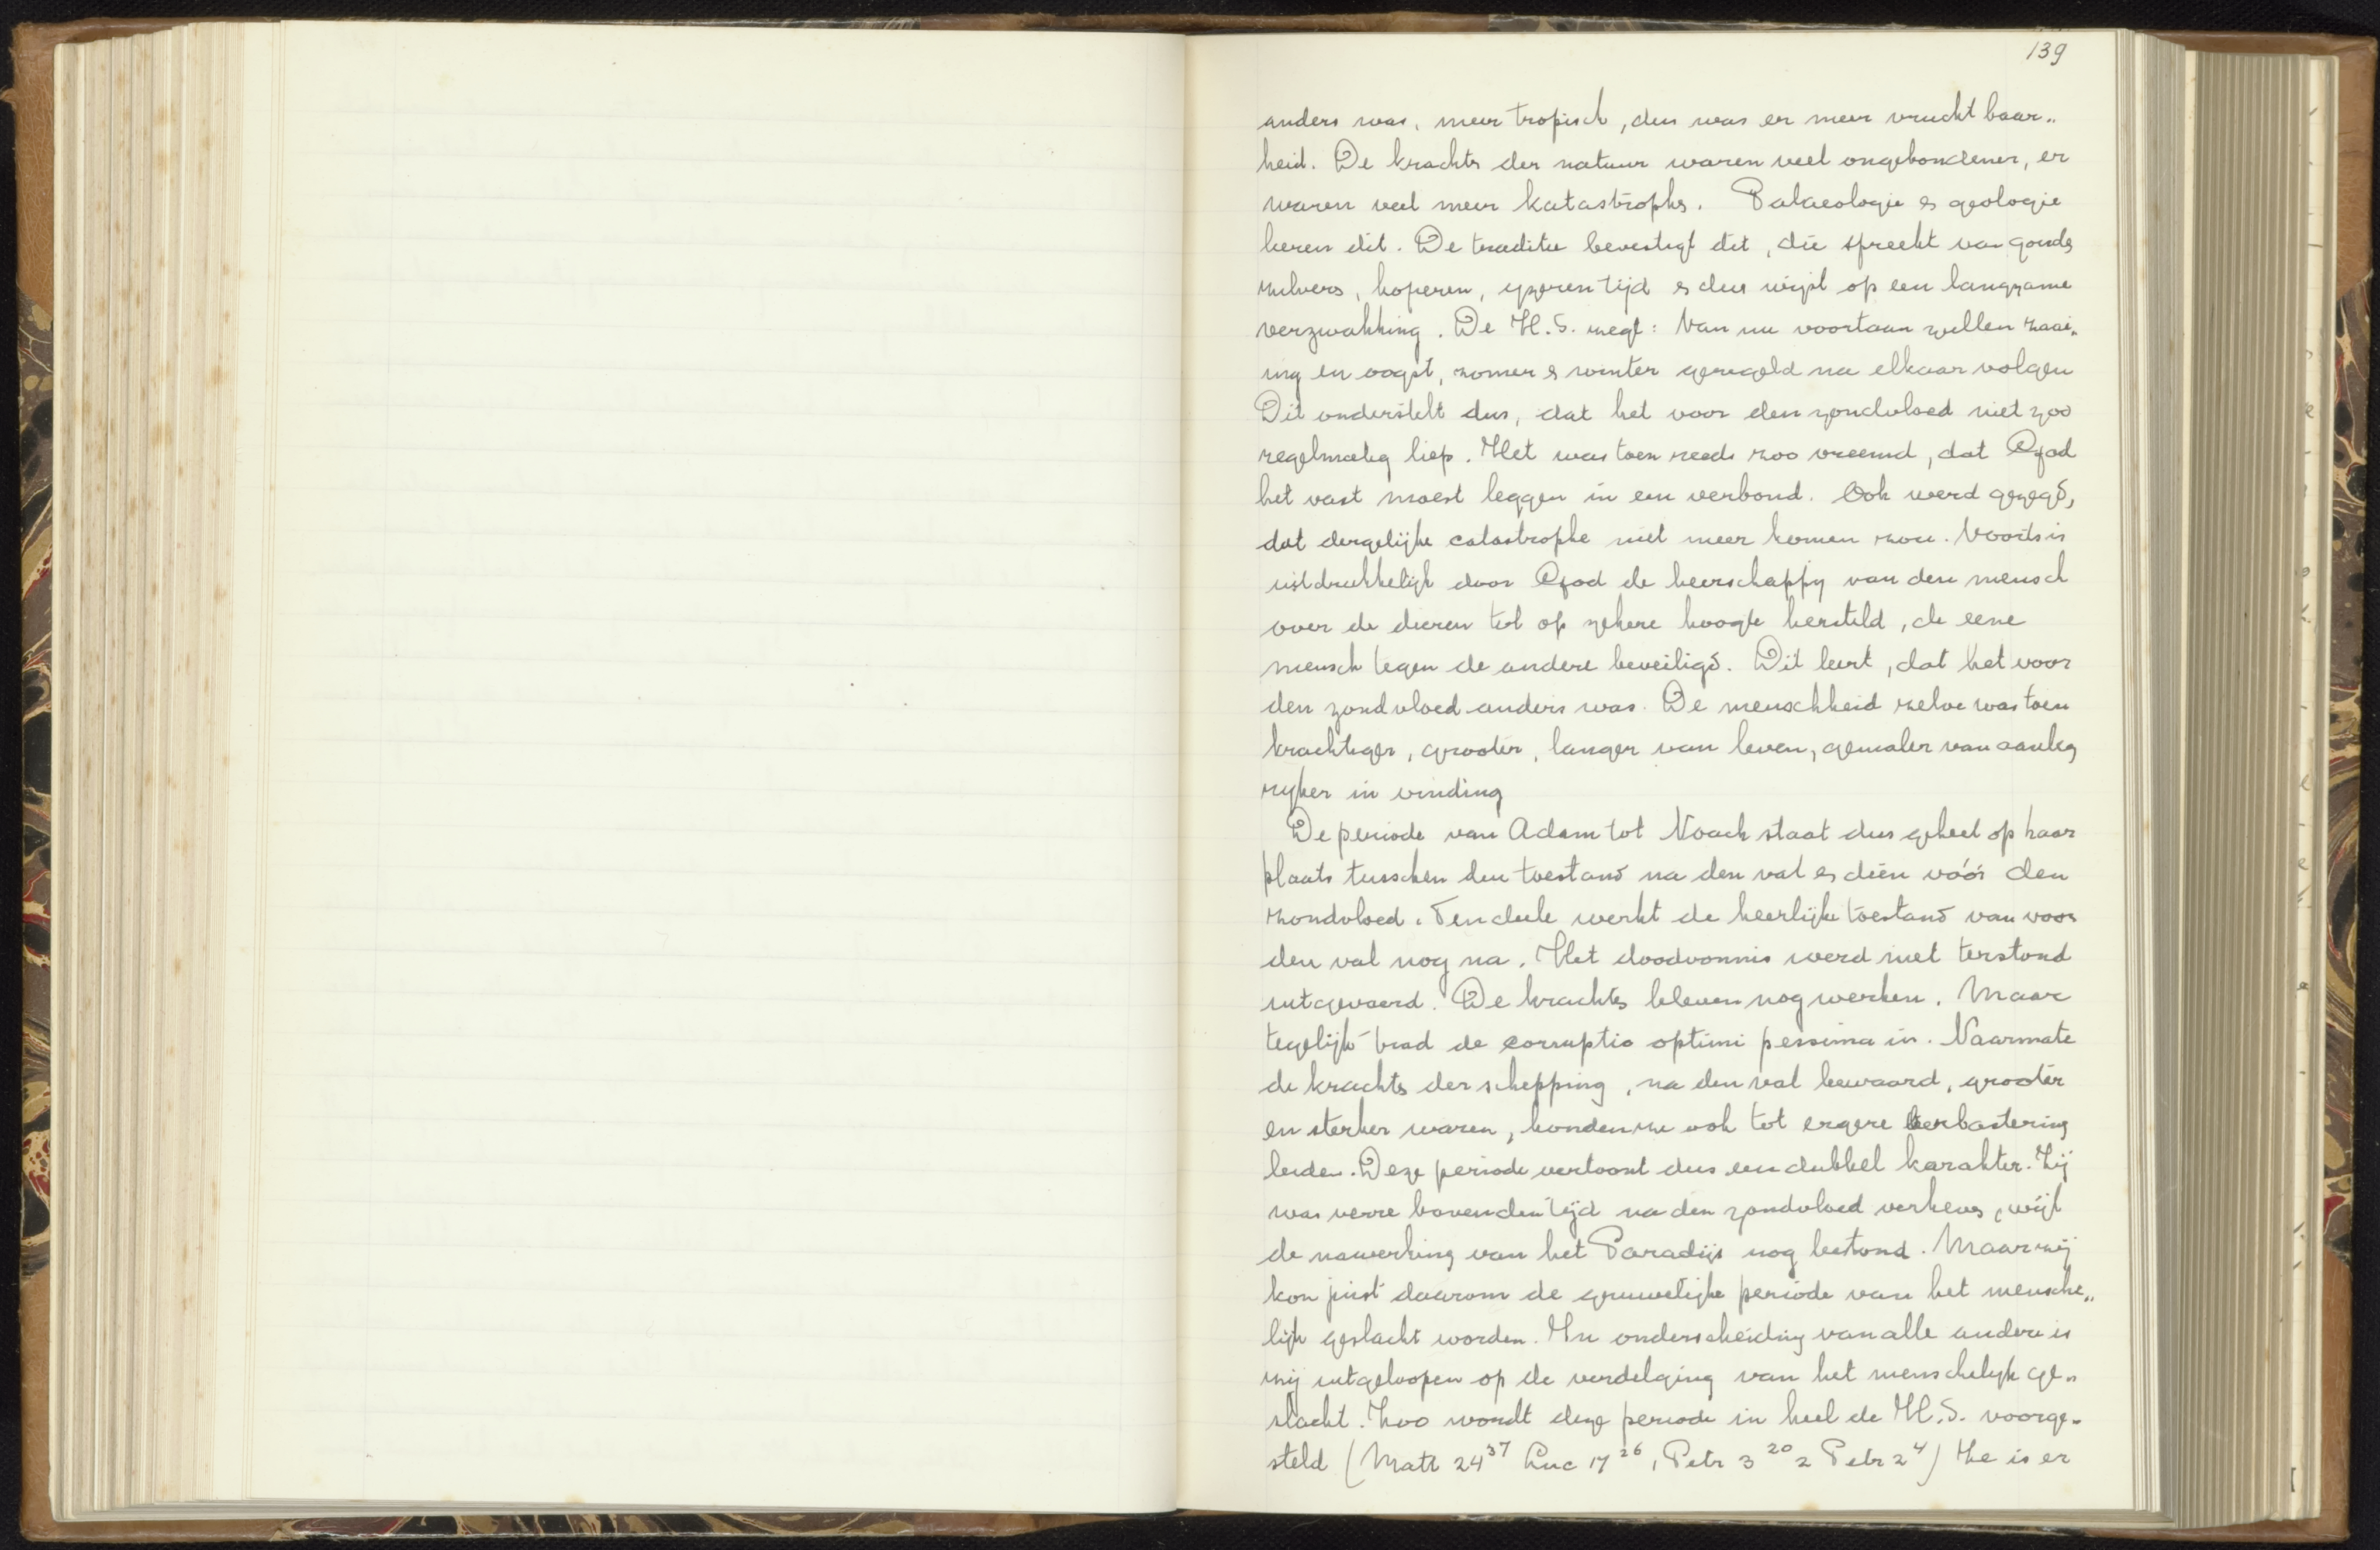 139
anders was, meer tropisch, dus was er meer vruchtbaar„
heid. De krachts der natuur waren veel ongebondener, er
waren veel meer katastrophs. Palaeologie & geologie
leeren dit. De traditie bevestigt dit, die spreekt van gouds
zilvers, koperen, yzeren tijd & dus wijst op een langzame
verzwakking. De H.S. zegt: Van nu voortaan zullen zaai„
ing en oogst, zomer & winter geregeld na elkaar volgen
Dit onderstelt dus, dat het voor den zondvloed niet zoo
regelmatig liep. Het was toen reeds zoo vreemd, dat God
het vast moest leggen in een verbond. Ook werd gezegd,
dat dergelijke catastrophe niet meer komen zou. Voorts is
uitdrukkelijk door God de heerschappy van den mensch
over de dieren tot op zekere hoogte hersteld, de eene
mensch tegen de andere beveiligd. Dit leert, dat het voor
den zondvloed anders was. De menschheid zelve was toen
krachtiger, grooter, langer van leven, genialer van aanleg
ryker in vinding
De periode van Adam tot Noach staat dus geheel op haar
plaats tusschen den toestand na den val & dien vóór den
zondvloed. Ten deele werkt de heerlijke toestand van voor
den val nog na. Het doodvonnis werd niet terstond
uitgevoerd. De krachts bleven nog werken. Maar
tegelijk trad de corruptio optimi pessima in. Naarmate
de krachts der schepping, na den val bewaard, grooter
en sterker waren, konden ze ook tot ergere verbastering
leiden. Deze periode vertoont dus een dubbel karakter. Zij
was verre boven den tijd na den zondvloed verheven, wijl
de nawerking van het Paradijs nog bestond. Maar zij
kon juist daarom de gruwelijke periode van het mensche„
lijk geslacht worden. In onderscheiding van alle andere is
zij uitgeloopen op de verdelging van het menschelyk ge„
slacht. Zoo wordt deze periode in heel de H.S. voorge„
steld (Matt 24³⁷ Luc 17²⁶, 1 Petr 3²⁰ 2 Petr 2⁴) Ze is er